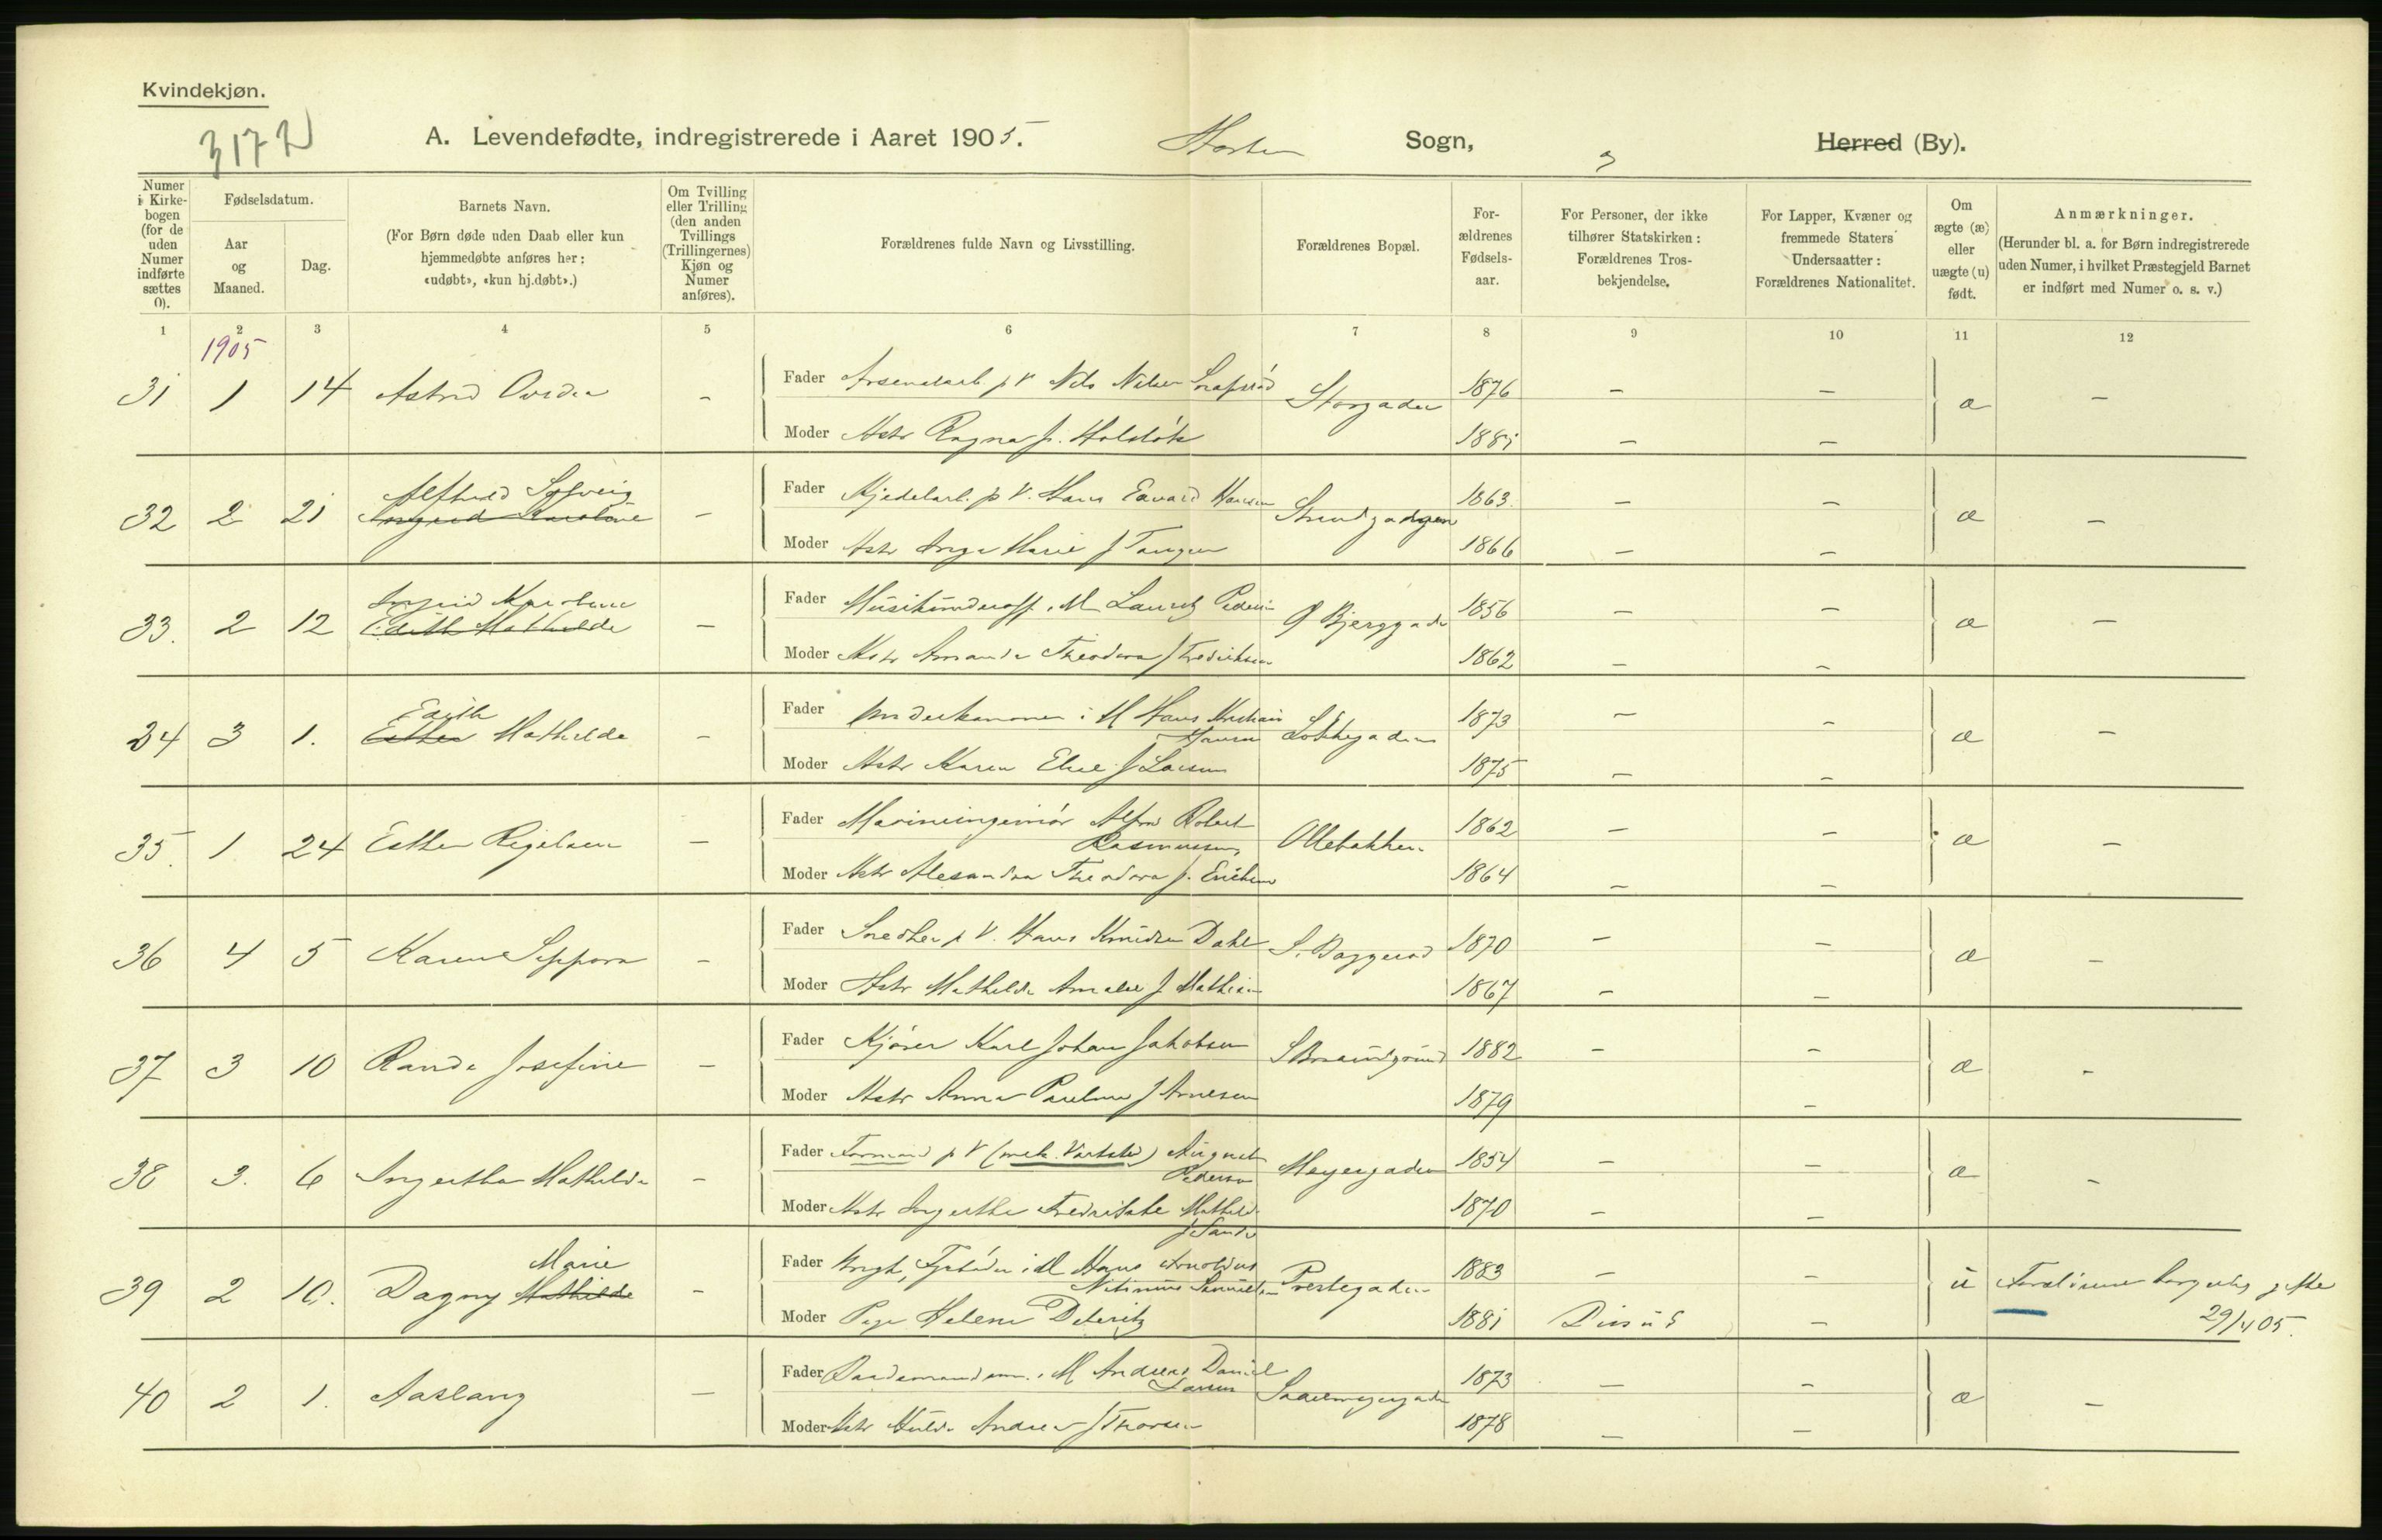 Kvindekjøn.
3172
A. Levendefødte, indregistrerede i Aaret 1905. Horten Sogn, Herred (By).
Numer i Kirkebogen (for de uden Numer indførte sættes 0).
Fødselsdatum.
Aar og Maaned.
Dag.
Barnets Navn.
(For Børn døde uden Daab eller kun hjemmedøbte anføres her: «udøbt», «kun hj.døbt».)
Om Tvilling eller Trilling (den anden Tvillings (Trillingernes) Kjøn og Numer anføres).
Forældrenes fulde Navn og Livsstilling.
Forældrenes Bopæl.
Forældrenes Fødselsaar.
For Personer, der ikke tilhører Statskirken: Forældrenes Trosbekjendelse.
For Lapper, Kvæner og fremmede Staters Undersaatter: Forældrenes Nationalitet.
Om ægte (æ) eller uægte (u) født.
Anmærkninger.
(Herunder bl. a. for Børn indregistrerede uden Numer, i hvilket Præstegjeld Barnet er indført med Numer o. s. v.)
1 2 3 4 5 6 7 8 9 10 11 12
1905
31 1 14 Astrid – Fader Arsenalarb. p V Nils Nilsen Storgaden 1876 – – æ –
Moder Hstr Ragna f. 1881 – –
32 2 21 Alfhild Solveig
Ingrid Karoline – Fader Kjedelarb. p V. Hans Edvard Hansen 1863 – – æ –
Moder Hstr Inga Marie f Tangen 1866 – –
33. 2 12 Ingrid Karoline
Edith Mathilde – Fader Lauritz Pedersen Ø Bjerggade 1856 – – æ –
Moder Hstr Amanda Theodora f Fredriksen 1862 – –
34 3 1. Edith
Esther Mathilde – Fader Underkanoner i M Hans Kristian
Hansen Løkkegaden 1873 – – æ –
Moder Hstr Karen Elise f Larsen 1875 – –
35. 1 24 Esther – Fader Marineingeniør Alfred Robert
Rasmussen Ollebakken 1862 – – æ –
Moder Hstr Alexandra Theodora f. Eriksen 1864 – –
36 4 5 Karen Sippora – Fader Snedker p V. Hans Knudsen Dahl 1870 – – æ –
Moder Hstr Mathilde Amalie f Mathisen 1867 – –
37 3 10 Randi Josefine – Fader Karl Johan Jakobsen 1882 – – æ –
Moder Hstr Anna Pauline f Arnesen 1879 –
38 3. 6 Ingertha Mathilde – Fader Formand p V (mek. Værksted) August
Pedersen Meyergaden 1854 – – æ –
Moder Hstr Ingertha Fredrikke Mathilde
f Sande 1870 – –
39 2 10. Marie
Dagny Mathilde – Fader Hans Arnoldus
Prestegaden 1883 – – u
Moder Pige Helene 1881 –
29/4 05.
40 2 1. Aaslaug – Fader M Andreas Daniel
Larsen 1873 – – æ –
Moder Hstr Hulda Andrea f Thorsen 1878 – –